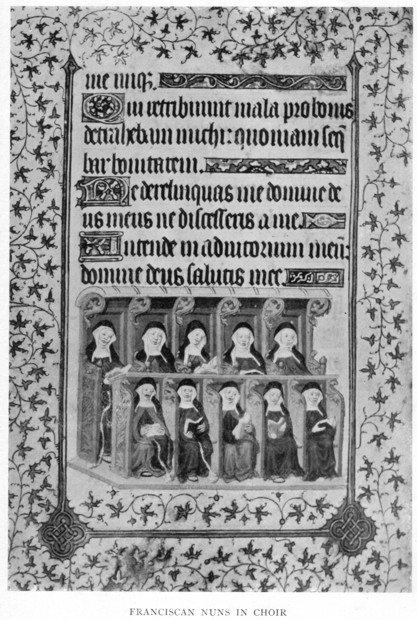 me iniq;.
Qui retribuunt mala pro bonis
detrahebant michi: quoniam seq̄
bar bonitatem.
Ne derelinquas me domine de
us meus ne discesseris a me.
Intende in adiutorium meū:
domine deus salutis mee.
FRANCISCAN NUNS IN CHOIR